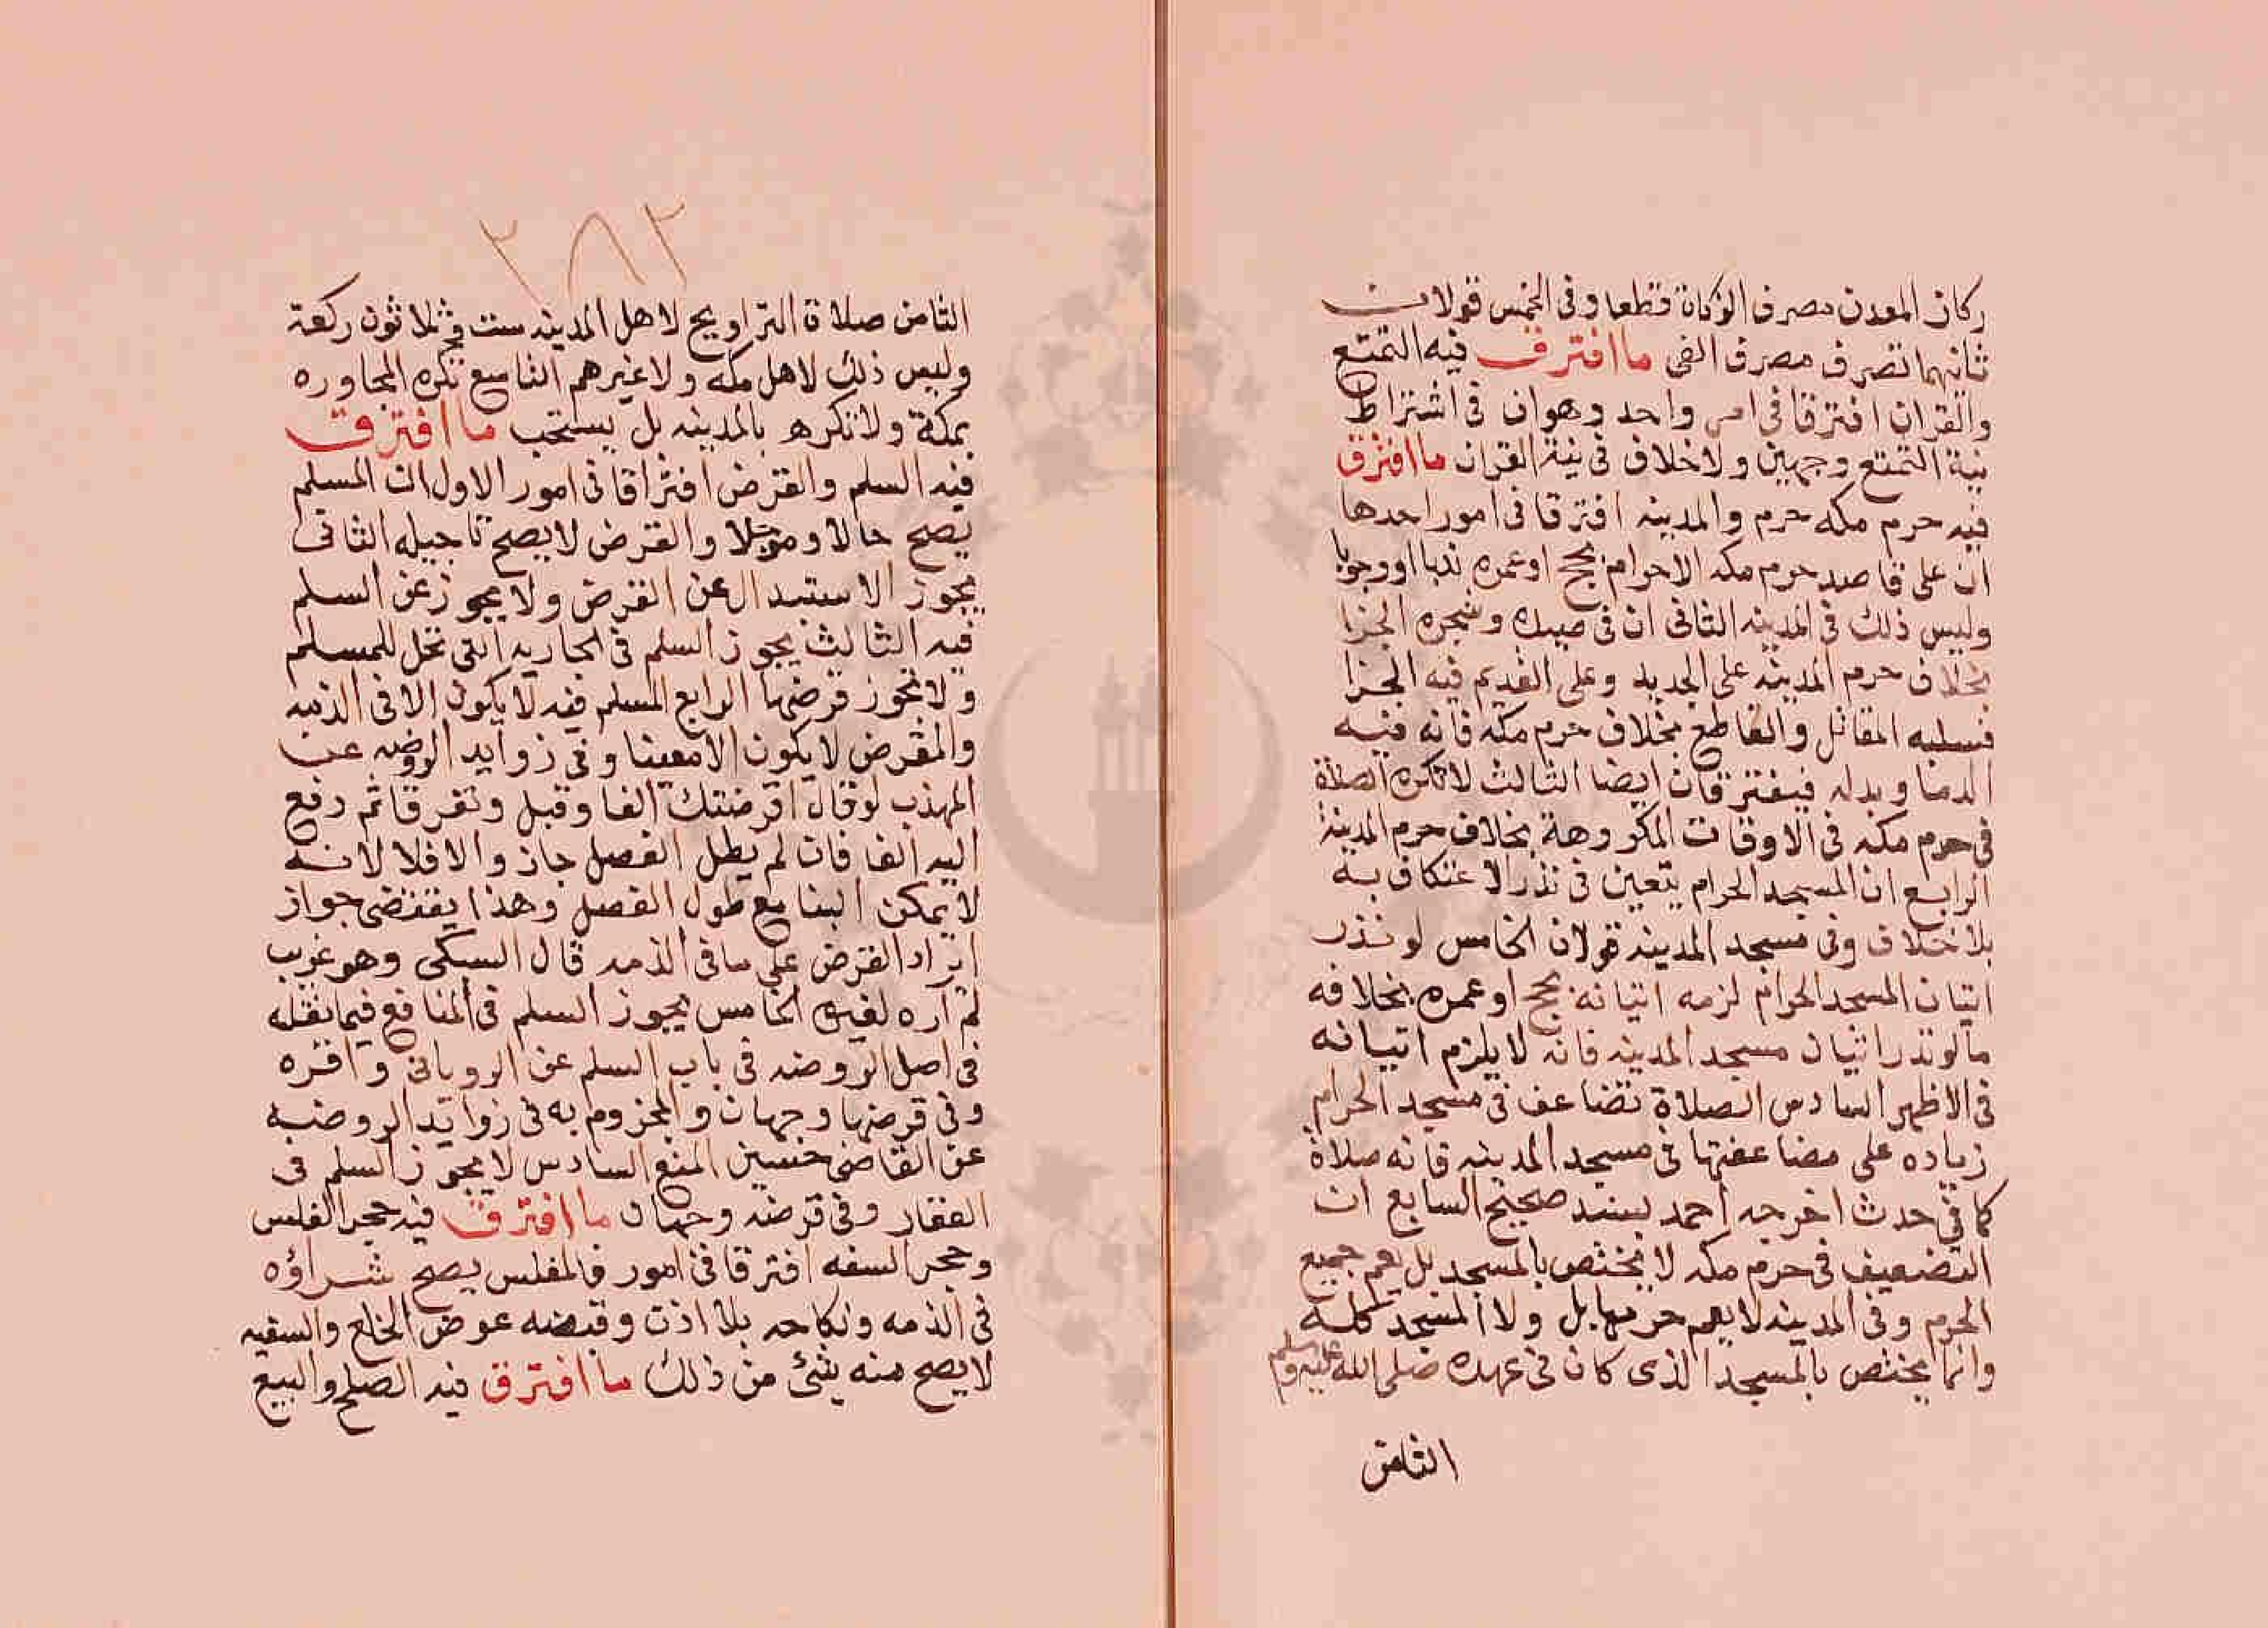 ركاز المعدن مصرف الزكاة قطعا وفى الخمس قولان
ثانيهما تصرف مصرف الفى ما افترق فيه التمتع
والقران افترقا فى امر واحد وهو ان فى اشتراط
نية التمتع وجهين ولا خلاف فى نية القران ما افترق
فيه حرم مكه حرم والمدينه افترقا فى امور احدها
ان على قاصد حرم مكه الاحرام بحج او عمره ندبا او وجوبا
وليس ذلك فى المدينه الثانى ان فى صيده وشجره الجزا
بخلاف حرم المدينه على الجديد وعلى القديم فيه الجزا
فسلبه القاتل والقاطع بخلاف حرم مكه فانه فيه
الدما وبدله فيفترقان ايضا الثالث لا تكره الصلاة
فى حرم مكه فى الاوقات المكروهة بخلاف حرم المدينة
الرابع ان المسجد الحرام يتعين فى نذر الاعتكاف به
بلا خلاف وفى مسجد المدينه قولان الخامس لو نذر
اتيان المسجد الحرام لزمه اتيانه بحج او عمره بخلافه
مالو نذر اتيان مسجد المدينه فانه لا يلزم اتيانه
فى الاظهر السادس الصلاة تضاعف فى مسجد الحرام
زياده على مضاعفتها فى مسجد المدينه فانه صلاة
كما فى حدث اخرجه احمد بسند صحيح السابع ان
التضعيف فى حرم مكه لا يختص بالمسجد بل يعم جميع
الحرم وفى المدينه لا يعم حرمها بل ولا المسجد كله
وانما يختص بالمسجد الذى كان فى عهده صلى الله عليه وسلم
الثامن
٢٨٢
الثامن صلاة التراويح لاهل المدينه ست وثلاثون ركعة
وليس ذلك لاهل مكه ولا غيرهم التاسع تكره المجاوره
بمكة ولا تكره بالمدينه بل يستحب ما افترق
فيه السلم والقرض افتراقا فى امور الاول ان المسلم
يصح حالا وموجلا والقرض لا يصح تاجيله الثانى
يجوز الاستبدال عن القرض ولا يجوز عن السلم
فيه الثالث يجوز السلم فى الجاريه التى تحل للمسلم
ولا تجوز قرضها الرابع المسلم فيه لا يكون الا فى الذمه
والمقرض لا يكون الا معينا وفى زوايد الروضه عن
المهذب لو قال اقرضتك الفا وقبل وتفرقا ثم دفع
اليه الفا فان لم يطل الفصل جاز والا فلا لانه
لا يمكن البنا مع طول الفصل وهذا يقتضى جواز
ايراد القرض على ما فى الذمه قال السبكى وهو غريب
لم اره لغيره الخامس يجوز السلم فى المنافع فيما نقله
فى اصل الروضه فى باب السلم عن الرويانى واقره
وفى قرضها وجهان والمجزوم به فى زوايد الروضه
عن القاضى حسين المنع السادس لا يجوز السلم فى
العقار وفى قرضه وجهان ما افترق فيه حجر الفلس
وحجر السفه افترقا فى امور فالمفلس يصح شراؤه
فى الذمه ونكاحه بلا اذن وقبضه عوض الخلع والسفيه
لا يصح منه شئ من ذلك ما افترق فيه الصلح والبيع